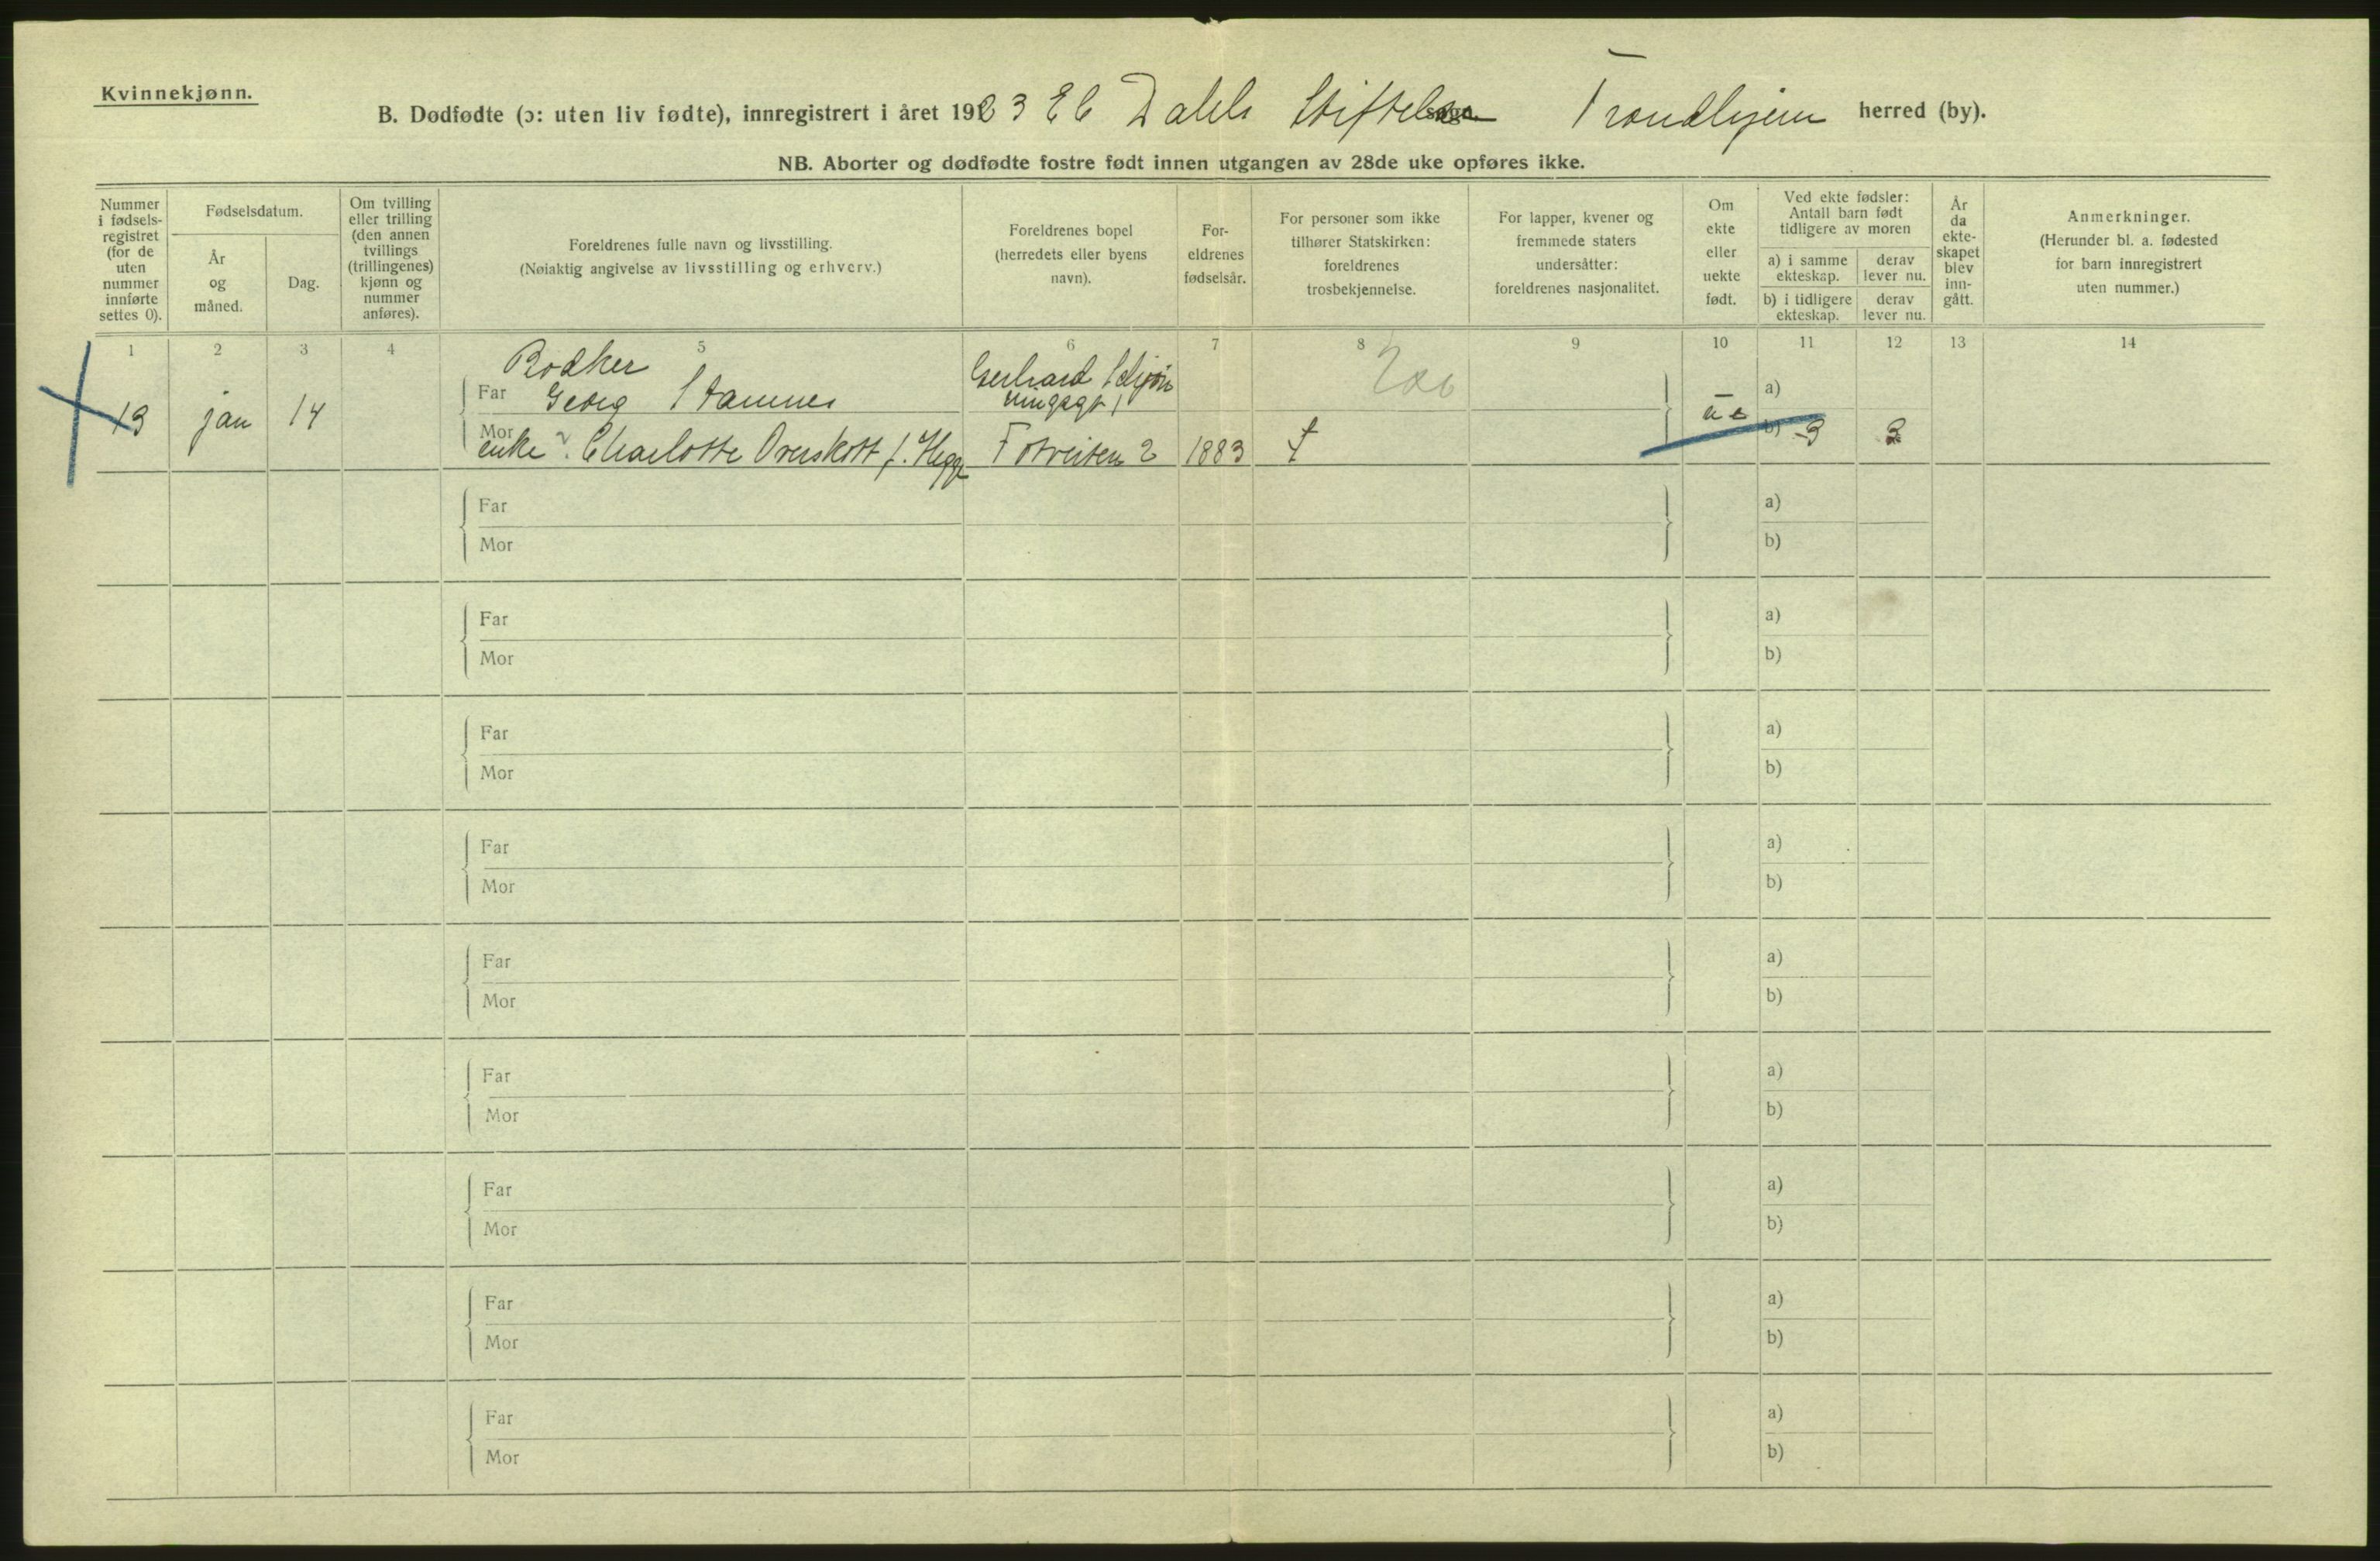 Kvinnekjønn.
B. Dødfødte (ɔ: uten liv fødte), innregistrert i året 1923 E C Dahls Stiftelse sogn. Trondhjem herred (by).
NB. Aborter og dødfødte fostre født innen utgangen av 28de uke opføres ikke.
Nummer
i fødsels-
registret
(for de
uten
nummer
innførte
settes 0).
Fødselsdatum.
År
og
måned.
Dag.
Om tvilling
eller trilling
(den annen
tvillings
(trillingenes)
kjønn og
nummer
anføres).
Foreldrenes fulle navn og livsstilling.
(Nøiaktig angivelse av livsstilling og erhverv.)
Foreldrenes bopel
(herredets eller byens
navn).
For-
eldrenes
fødselsår.
For personer som ikke
tilhører Statskirken:
foreldrenes
trosbekjennelse.
For lapper, kvener og
fremmede staters
undersåtter:
foreldrenes nasjonalitet.
Om
ekte
eller
uekte
født.
Ved ekte fødsler:
Antall barn født
tidligere av moren
a) i samme
ekteskap.
derav
lever nu.
b) i tidligere
ekteskap.
derav
lever nu.
År
da
ekte-
skapet
blev
inn-
gått.
Anmerkninger.
(Herunder bl. a. fødested
for barn innregistrert
uten nummer.)
1 2 3 4 5 6 7 8 9 10 11 12 13 14
Bødker
Far Georg Stamnes Gerhard a)
13 jan 14 ue
Mor enke Charlotte Overskott f. Hegge 2 1883 b) 3 3
Far a)
Mor b)
Far a)
Mor b)
Far a)
Mor b)
Far a)
Mor b)
Far a)
Mor b)
Far a)
Mor b)
Far a)
Mor b)
Far a)
Mor b)
Far a)
Mor b)